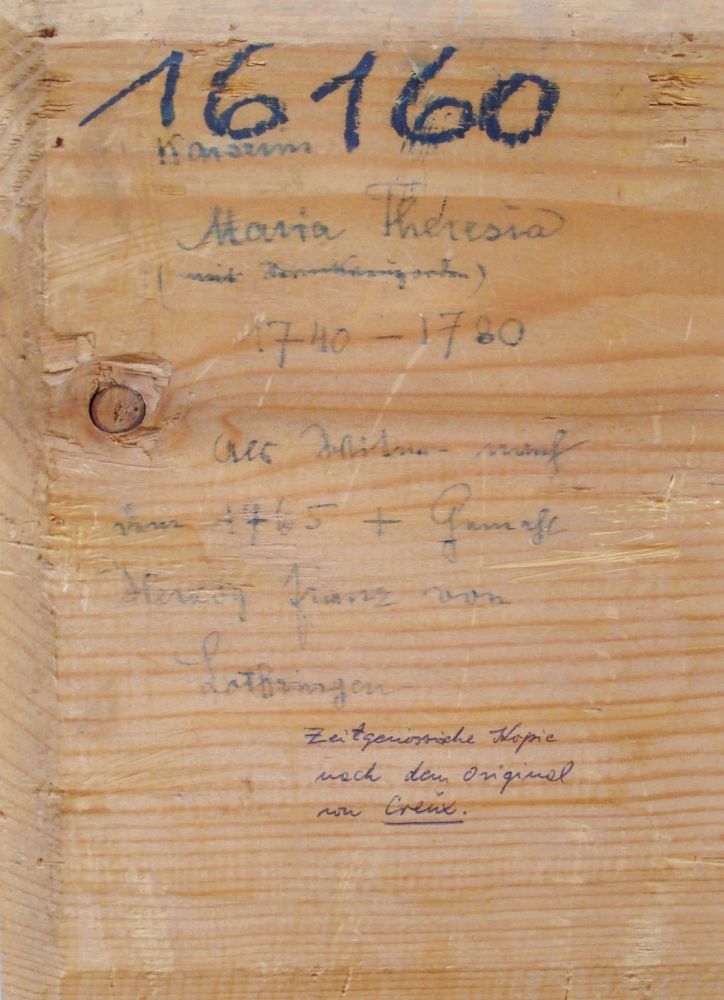 16160
Kaiserin
Maria Theresia
(mit Sternkreuzorden)
1740 - 1780
als Witwe nach
dem 1765 + Gemahl
Herzog Franz von
Lothringen
Zeitgenössische Kopie
nach dem Original
von Creüx.